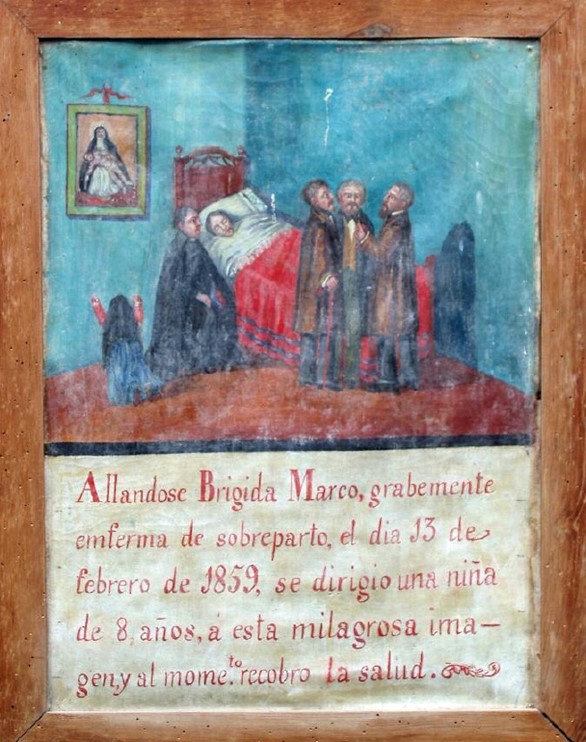 Allandose Brigida Marco, grabemente
emferma de sobreparto, el dia 13 de
febrero de 1859, se dirigio una niña
de 8, años, á esta milagrosa ima-
gen, y al mome.to recobro la salud.